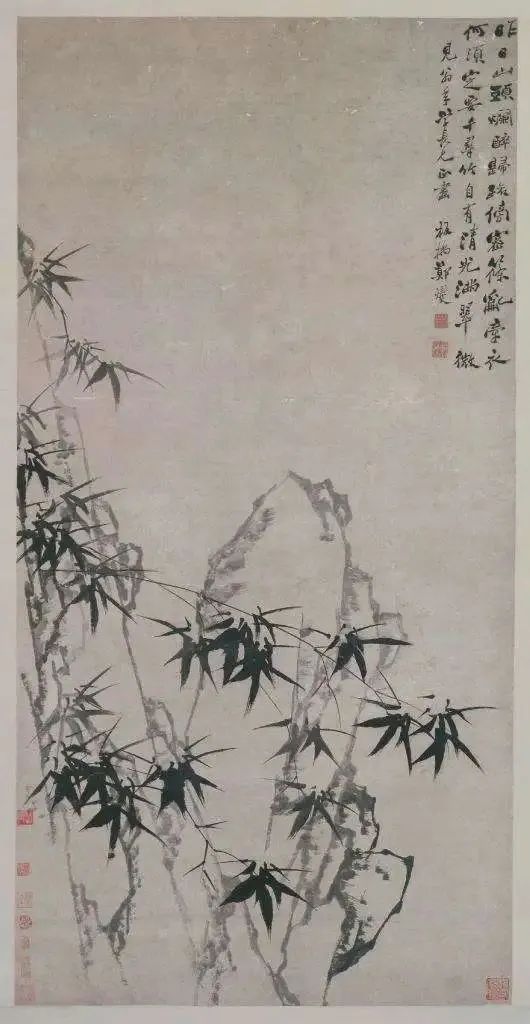 昨日山頭爛醉歸路傍密篠亂牽衣
何須定要千尋竹自有清光滿翠微
見翁年學長兄正畫
板橋鄭燮